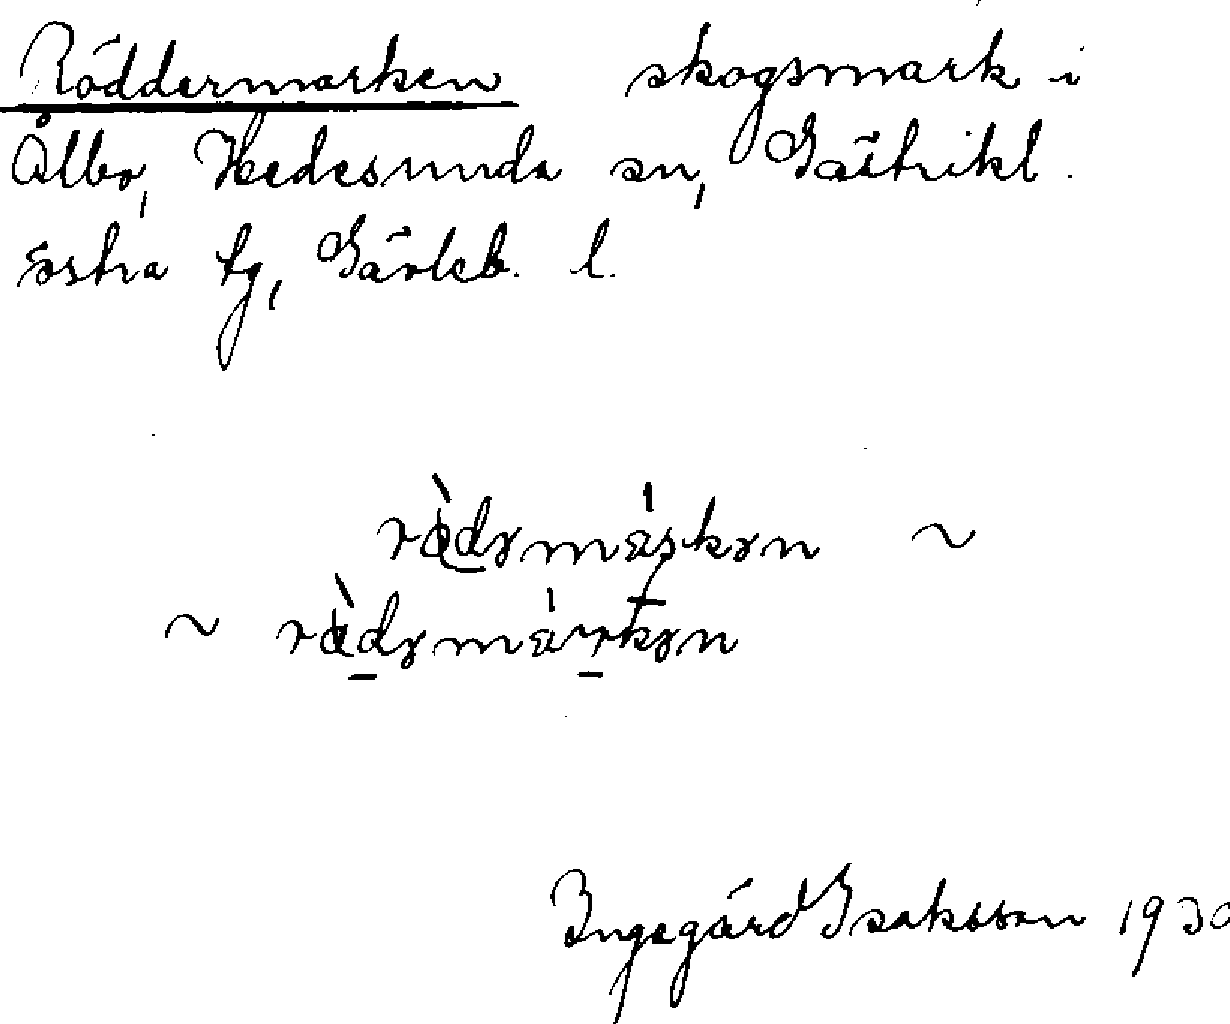 Röddermarken skogsmark i
Ålbo, Hedesunda sn, Gästrikl.
östra tg, Gävleb. l.
Ingegärd Isaksson 1930